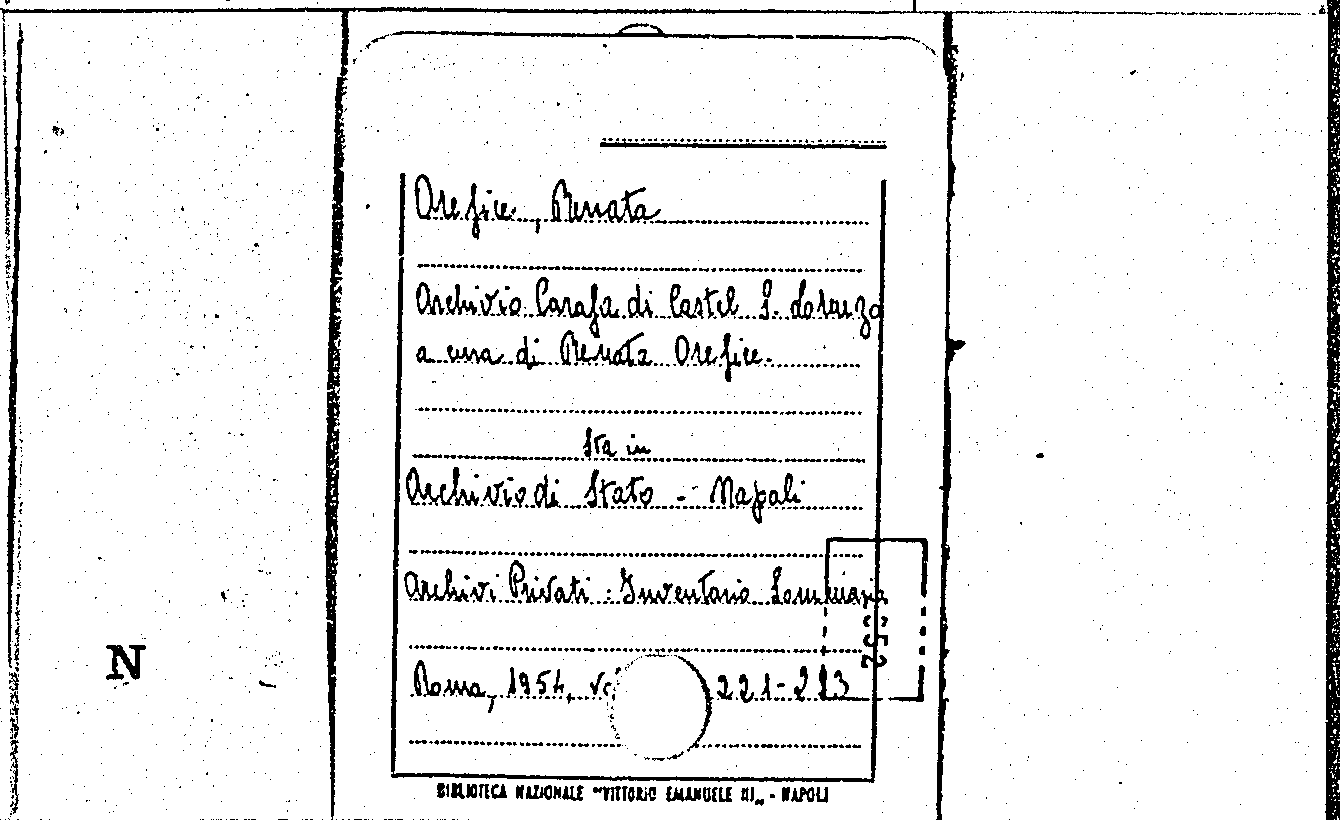 Orefice, Renata
Archivio Carafa di Castel S. Lorenzo
a cura di Renata Orefice.
Sta in
Archivio di Stato - Napoli
Archivi Privati : Inventario Sommario
N
Roma, 1954, 221-223
BIBLIOTECA NAZIONALE "VITTORIO EMANUELE III„ - NAPOLI